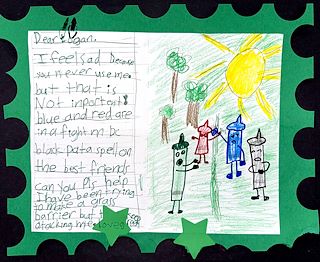 Dear Logan,
I feel sad Because
you never use me
but that is
Not inportent!
blue and red are
in a fight in DC
black pata spell on
the best friends
can you Pls help!
I have been trying
to make a grass
barrier but
atacking me. Love